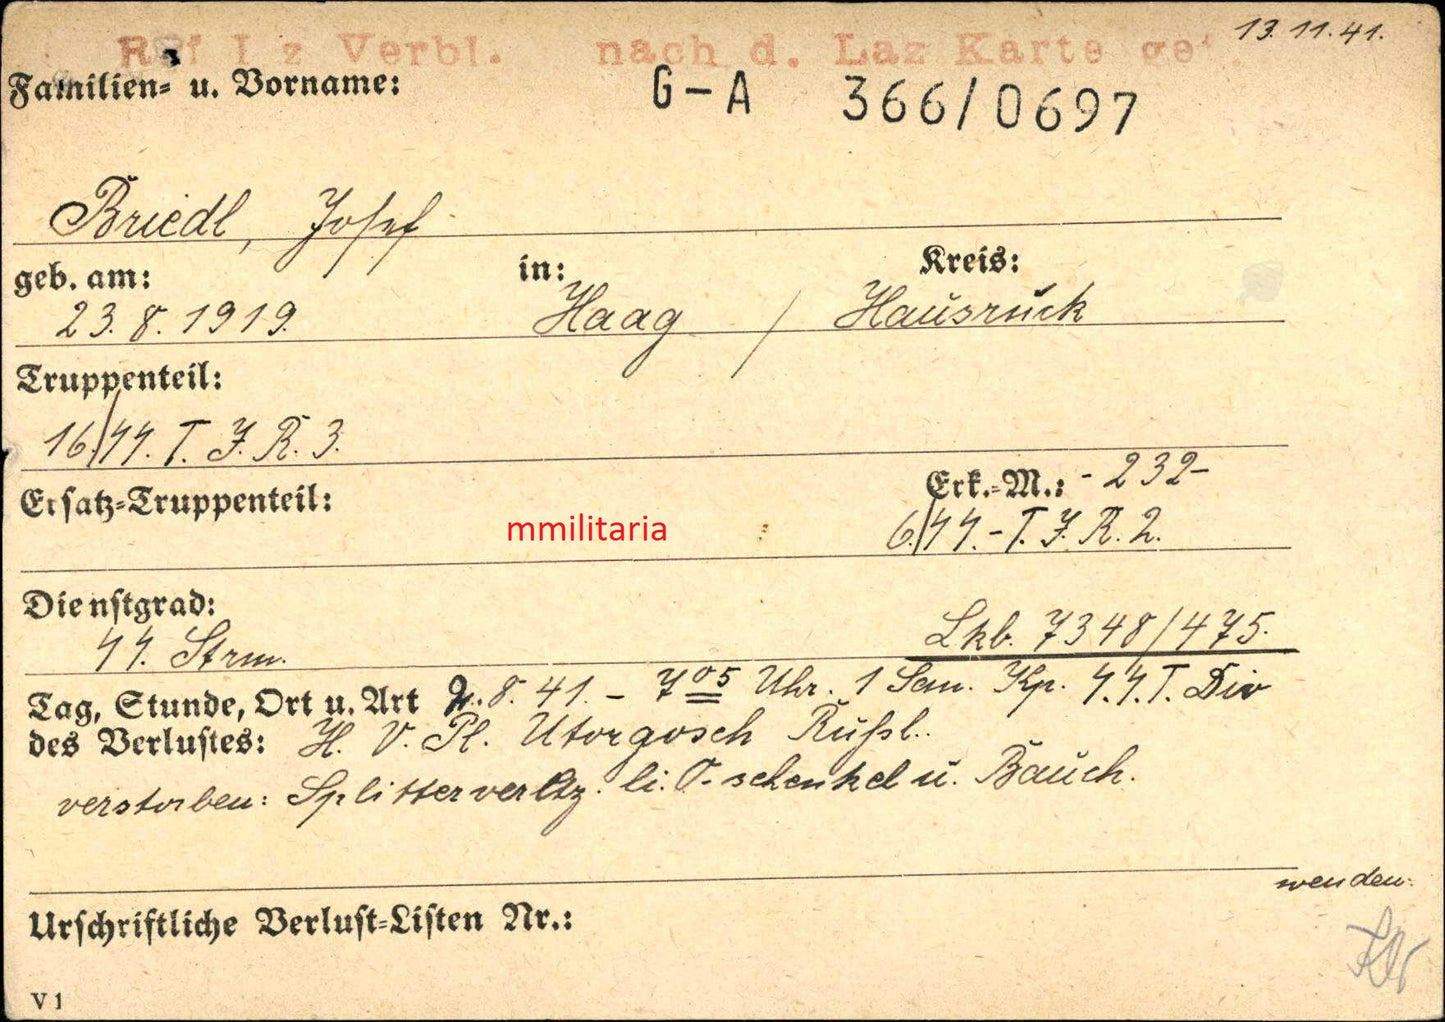 13.11.41.
Ref I z Verbl. nach d. Laz Karte
Familien- u. Vorname:
G-A 366/0697
Briedl, Josef
geb. am: in: Kreis:
23.8.1919. Haag / Hausruck
Truppenteil:
16./ᛋᛋ. T. J. R. 3.
Ersatz-Truppenteil: Erk.-M.: -232-
mmilitaria
6./ᛋᛋ.-T. J. R. 2.
Dienstgrad:
ᛋᛋ. Strm. Lkb. 7348/475.
Tag, Stunde, Ort u. Art 2.8.41. - 7⁰⁵ Uhr. 1 San. Kp. ᛋ.ᛋ.T. Div
des Verlustes: H. V. Pl. Utorgosch Rußl.
verstorben: Splitterverltz. li. O.-schenkel u. Bauch.
wenden.
Urschriftliche Verlust-Listen Nr.:
V 1